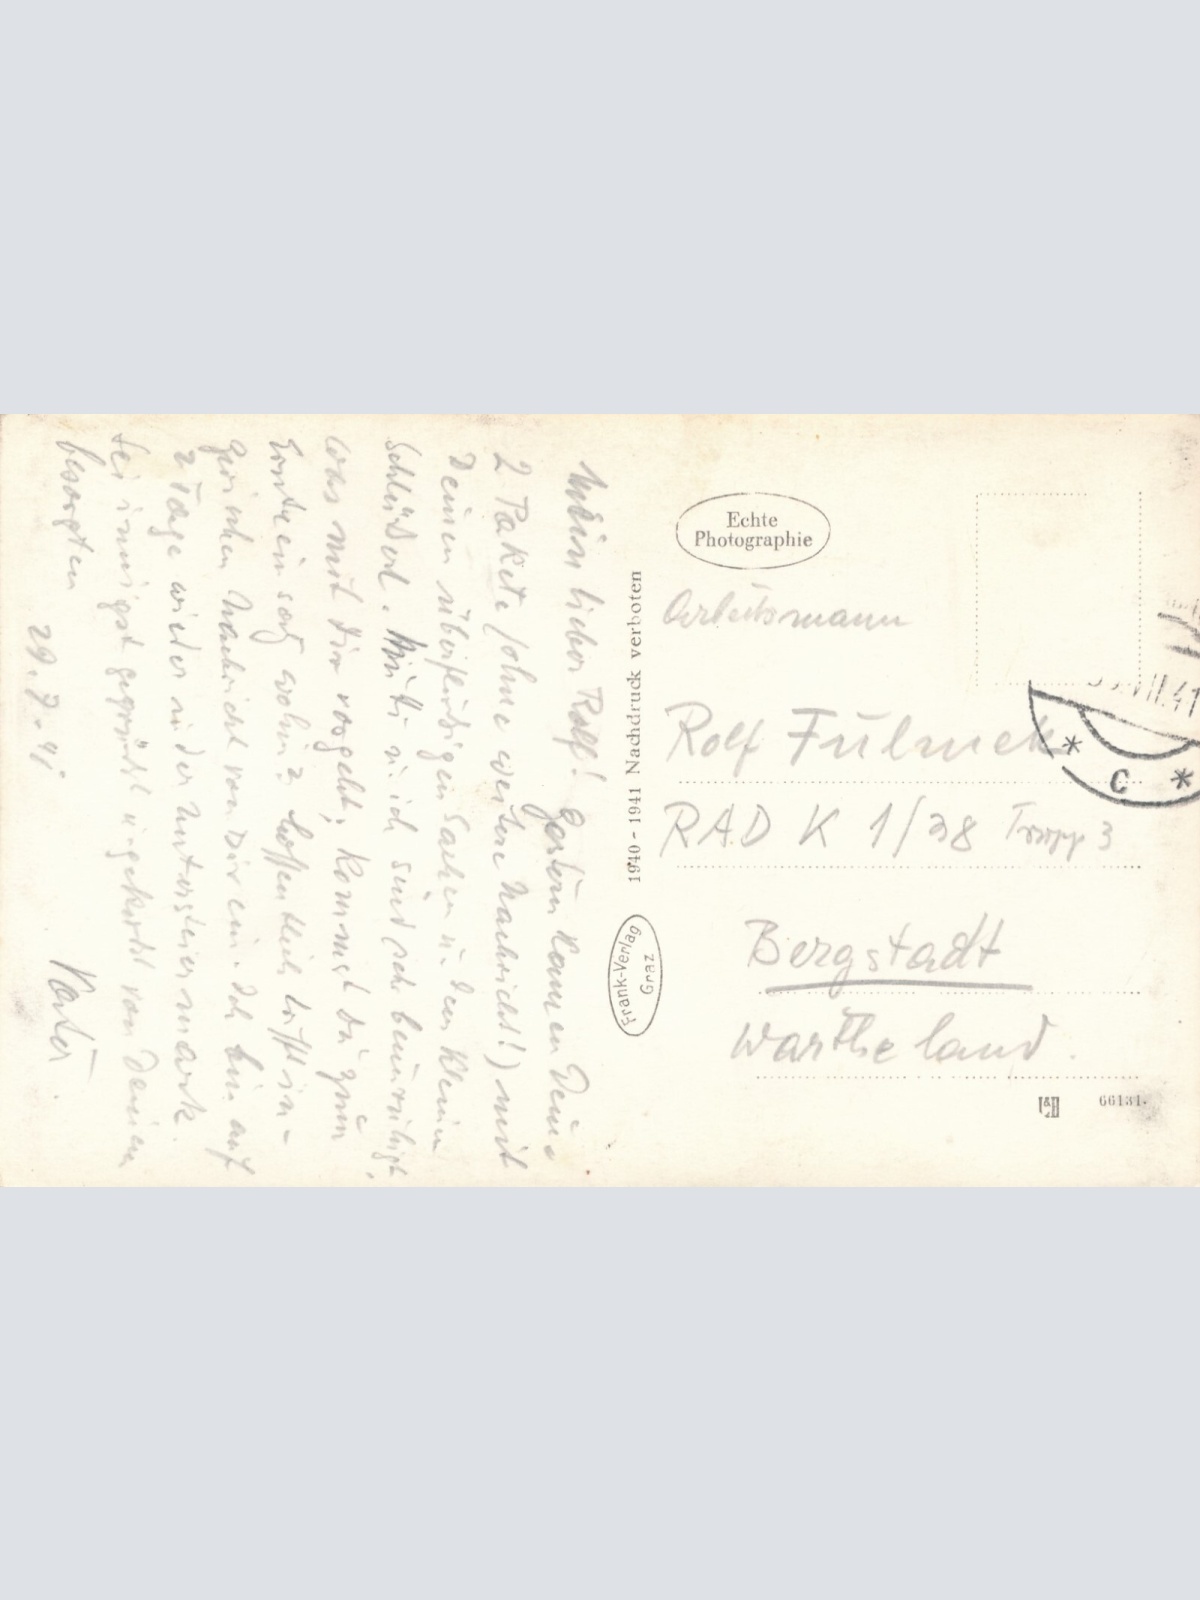 Mein lieber Rolf! Gestern kamen Deine
2 Pakete (ohne weitere Nachricht!) mit
Deinen überflüssigen Sachen u. den kleinen
Schlüsserl. Mutti u. ich sind sehr beunruhigt,
was mit Dir vorgeht, kommst Du zum
Ernteinsatz, wohin? hoffentlich trifft in-
zwischen Nachricht von Dir ein. Ich bin auf
2 Tage wieder in der Untersteiermark.
Sei innigst gegrüßt u. geküßt von Deinem
besorgten
29.7.41 Vater.
1940 - 1941 Nachdruck verboten
Frank-Verlag
Graz
Echte
Photographie
Arbeitsmann
Rolf Fulmek
RAD K 1/38 Trupp 3
Bergstadt
Wartheland.
VII.41
* C *
66131